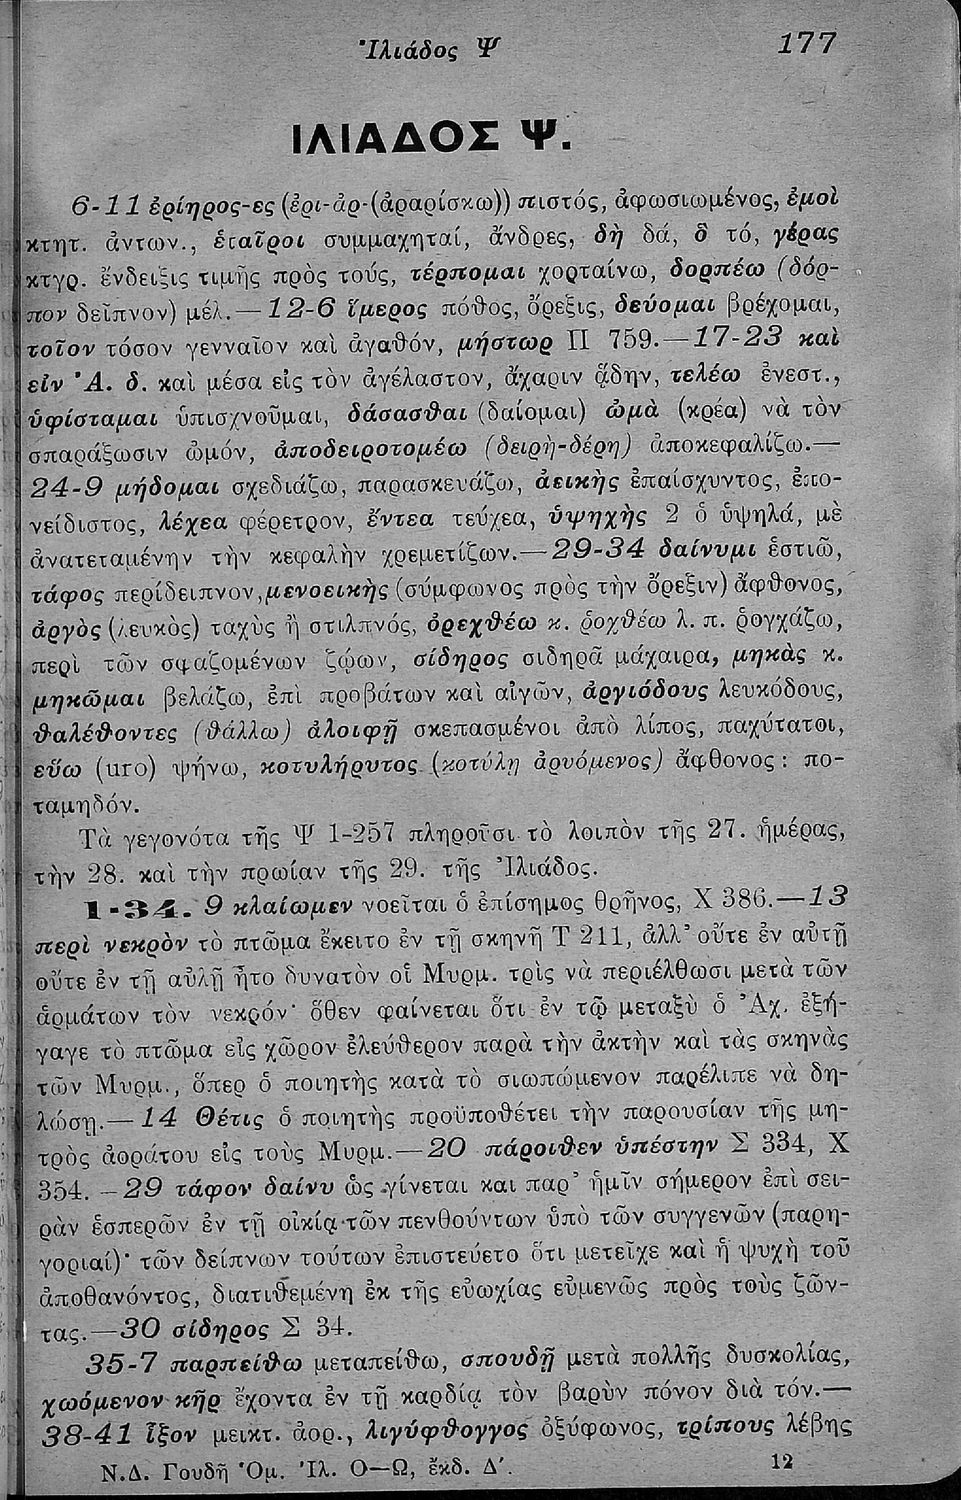 Ἰλιάδος Ψ 177
ΙΛΙΑΔΟΣ Ψ.
6-11 ἐρίηρος-ες (ἐρι-ἀρ-(ἀραρίσκω)) πιστός, ἀφωσιωμένος, ἐμοὶ
κτητ. ἀντων., ἑταῖροι συμμαχηταί, ἄνδρες, δὴ δά, ὃ τό, γέρας
κτγρ. ἔνδειξις τιμῆς πρὸς τούς, τέρπομαι χορταίνω, δορπέω (δόρ-
πον δεῖπνον) μέλ.—12-6 ἵμερος πόθος, ὄρεξις, δεύομαι βρέχομαι,
τοῖον τόσον γενναῖον καὶ ἀγαθόν, μήστωρ Π 759.—17-23 καὶ
εἰν Ἀ. δ. καὶ μέσα εἰς τὸν ἀγέλαστον, ἄχαριν ᾅδην, τελέω ἐνεστ.,
ὑφίσταμαι ὑπισχνοῦμαι, δάσασθαι (δαίομαι) ὠμὰ (κρέα) νὰ τὸν
σπαράξωσιν ὠμόν, ἀποδειροτομέω (δειρὴ-δέρη) ἀποκεφαλίζω.—
24-9 μήδομαι σχεδιάζω, παρασκευάζω, ἀεικὴς ἐπαίσχυντος, ἐπο-
νείδιστος, λέχεα φέρετρον, ἔντεα τεύχεα, ὑψηχὴς 2 ὁ ὑψηλά, μὲ
ἀνατεταμένην τὴν κεφαλὴν χρεμετίζων.—29-34 δαίνυμι ἑστιῶ,
τάφος περίδειπνον, μενοεικὴς (σύμφωνος πρὸς τὴν ὄρεξιν) ἄφθονος,
ἀργὸς (λευκὸς) ταχὺς ἢ στιλπνός, ὀρεχθέω κ. ῥοχθέω λ. π. ῥογχάζω,
περὶ τῶν σφαζομένων ζῴων, σίδηρος σιδηρᾶ μάχαιρα, μηκὰς κ.
μηκῶμαι βελάζω, ἐπὶ προβάτων καὶ αἰγῶν, ἀργιόδους λευκόδους,
θαλέθοντες (θάλλω) ἀλοιφῇ σκεπασμένοι ἀπὸ λίπος, παχύτατοι,
εὕω (uro) ψήνω, κοτυλήρυτος (κοτύλη ἀρυόμενος) ἄφθονος: πο-
ταμηδόν.
Τὰ γεγονότα τῆς Ψ 1-257 πληροῦσι τὸ λοιπὸν τῆς 27. ἡμέρας,
τὴν 28. καὶ τὴν πρωίαν τῆς 29. τῆς Ἰλιάδος.
1-34. 9 κλαίωμεν νοεῖται ὁ ἐπίσημος θρῆνος, Χ 386.—13
περὶ νεκρὸν τὸ πτῶμα ἔκειτο ἐν τῇ σκηνῇ Τ 211, ἀλλ' οὔτε ἐν αὐτῇ
οὔτε ἐν τῇ αὐλῇ ἦτο δυνατὸν οἱ Μυρμ. τρὶς νὰ περιέλθωσι μετὰ τῶν
ἁρμάτων τὸν νεκρόν· ὅθεν φαίνεται ὅτι ἐν τῷ μεταξὺ ὁ Ἀχ. ἐξή-
γαγε τὸ πτῶμα εἰς χῶρον ἐλεύθερον παρὰ τὴν ἀκτὴν καὶ τὰς σκηνὰς
τῶν Μυρμ., ὅπερ ὁ ποιητὴς κατὰ τὸ σιωπώμενον παρέλιπε νὰ δη-
λώσῃ.—14 Θέτις ὁ ποιητὴς προϋποθέτει τὴν παρουσίαν τῆς μη-
τρὸς ἀοράτου εἰς τοὺς Μυρμ.—20 πάροιθεν ὑπέστην Σ 334, Χ
354.—29 τάφον δαίνυ ὡς γίνεται και παρ' ἡμῖν σήμερον ἐπὶ σει-
ρὰν ἑσπερῶν ἐν τῇ οἰκίᾳ τῶν πενθούντων ὑπὸ τῶν συγγενῶν (παρη-
γοριαί)· τῶν δείπνων τούτων ἐπιστεύετο ὅτι μετεῖχε καὶ ἡ ψυχὴ τοῦ
ἀποθανόντος, διατιθεμένη ἐκ τῆς εὐωχίας εὐμενῶς πρὸς τοὺς ζῶν-
τας.—30 σίδηρος Σ 34.
35-7 παρπείθω μεταπείθω, σπουδῇ μετὰ πολλῆς δυσκολίας,
χωόμενον κῆρ ἔχοντα ἐν τῇ καρδίᾳ τὸν βαρὺν πόνον διὰ τόν.—
38-41 ἷξον μεικτ. ἀορ., λιγύφθογγος ὀξύφωνος, τρίπους λέβης
Ν.Δ. Γουδῆ Ὁμ. Ἰλ. Ο—Ω, ἔκδ. Δ'. 12